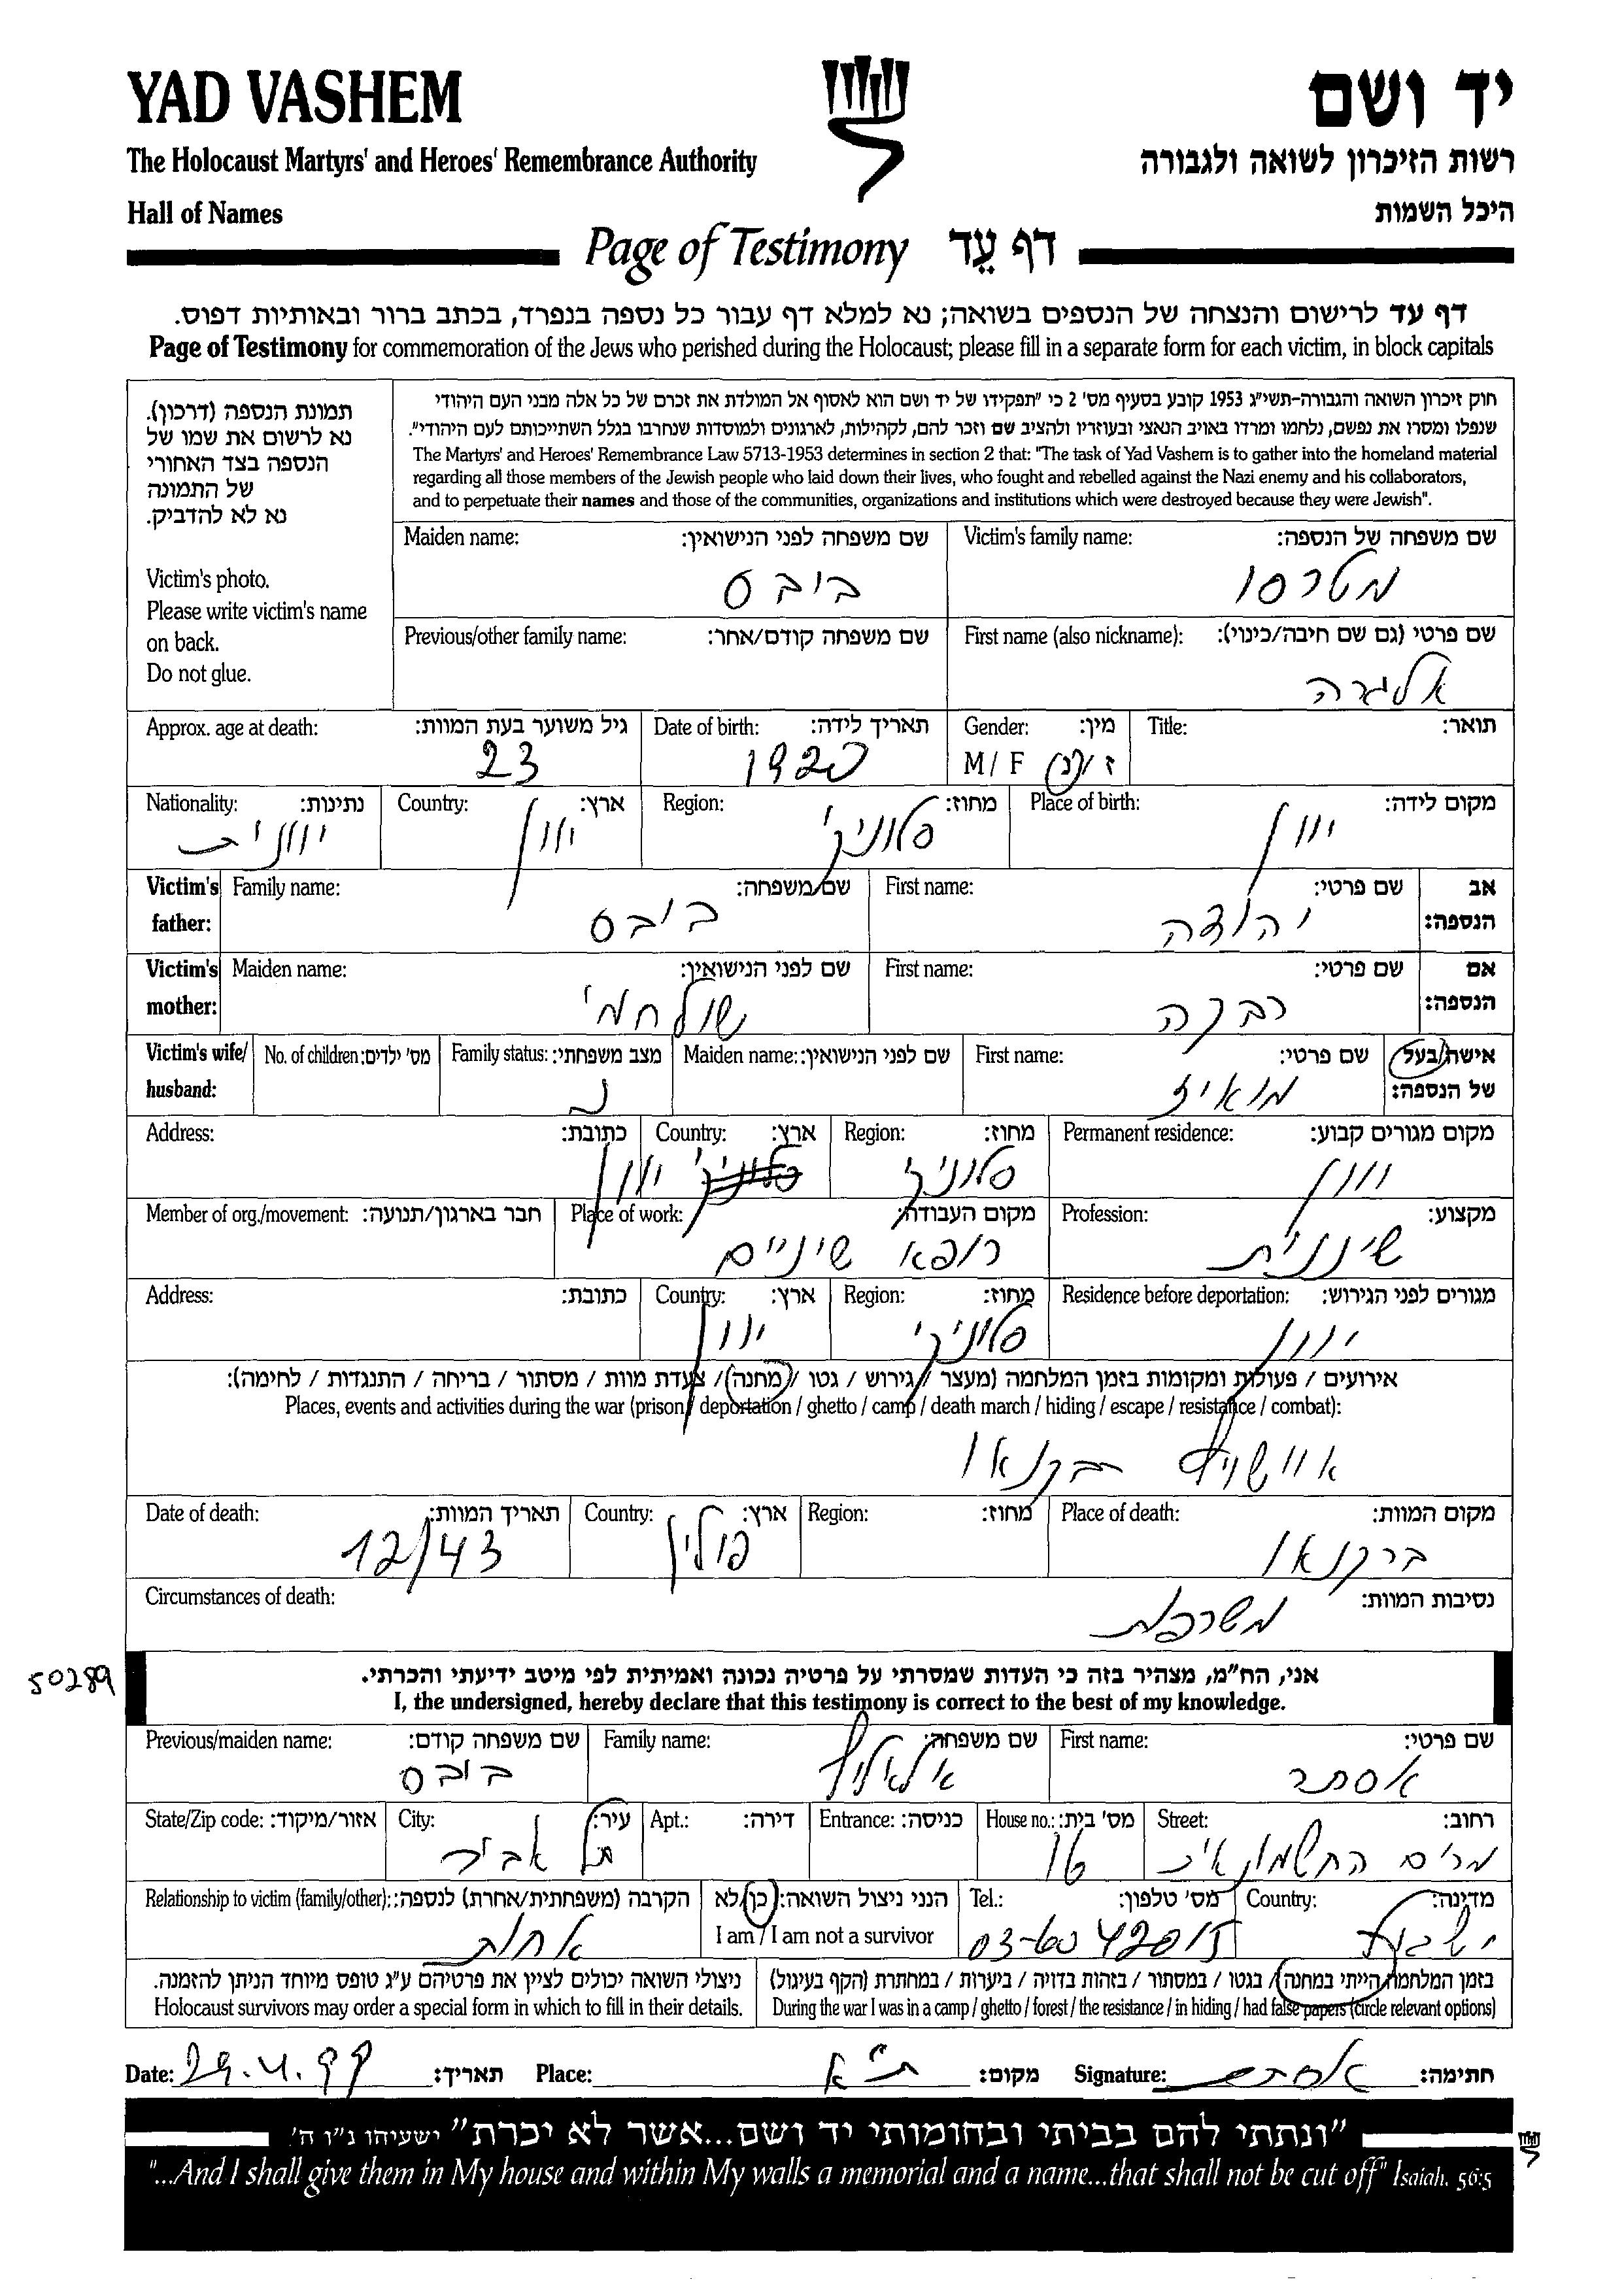 YAD VASHEM
יד ושם
The Holocaust Martyrs' and Heroes' Remembrance Authority
רשות הזיכרון לשואה ולגבורה
Hall of Names
היכל השמות
Page of Testimony דף עֵד
דף עד לרישום והנצחה של הנספים בשואה; נא למלא דף עבור כל נספה בנפרד, בכתב ברור ובאותיות דפוס.
Page of Testimony for commemoration of the Jews who perished during the Holocaust; please fill in a separate form for each victim, in block capitals
תמונת הנספה (דרכון).
נא לרשום את שמו של
הנספה בצד האחורי
של התמונה
נא לא להדביק.
Victim's photo.
Please write victim's name
on back.
Do not glue.
חוק זיכרון השואה והגבורה-תשי״ג 1953 קובע בסעיף מס' 2 כי "תפקידו של יד ושם הוא לאסוף אל המולדת את זכרם של כל אלה מבני העם היהודי
שנפלו ומסרו את נפשם, נלחמו ומרדו באויב הנאצי ובעוזריו ולהציב שם וזכר להם, לקהילות, לארגונים ולמוסדות שנחרבו בגלל השתייכותם לעם היהודי".
The Martyrs' and Heroes' Remembrance Law 5713-1953 determines in section 2 that: "The task of Yad Vashem is to gather into the homeland material
regarding all those members of the Jewish people who laid down their lives, who fought and rebelled against the Nazi enemy and his collaborators,
and to perpetuate their names and those of the communities, organizations and institutions which were destroyed because they were Jewish".
Victim's family name: שם משפחה של הנספה:
מטרסו
Maiden name: שם משפחה לפני הנישואין:
בובס
First name (also nickname): שם פרטי (גם שם חיבה/כינוי):
אלגרה
Previous/other family name: שם משפחה קודם/אחר:
Title: תואר:
Gender: מין:
M / F ז/נ
Date of birth: תאריך לידה:
1920
Approx. age at death: גיל משוער בעת המוות:
23
Place of birth: מקום לידה:
יוון
Region: מחוז:
סלוניקי
Country: ארץ:
יוון
Nationality: נתינות:
יוונית
Victim's father: אב הנספה:
First name: שם פרטי:
יהודה
Family name: שם משפחה:
בובס
Victim's mother: אם הנספה:
First name: שם פרטי:
רבקה
Maiden name: שם לפני הנישואין:
Victim's wife/husband: אישה/בעל של הנספה:
First name: שם פרטי:
מואיז
Maiden name: שם לפני הנישואין:
Family status: מצב משפחתי:
נ
No. of children: מס' ילדים:
Permanent residence: מקום מגורים קבוע:
יוון
Region: מחוז:
סלוניקי
Country: ארץ:
יוון
Address: כתובת:
Profession: מקצוע:
שיננית
Place of work: מקום העבודה:
רופא שיניים
Member of org./movement: חבר בארגון/תנועה:
Residence before deportation: מגורים לפני הגירוש:
יוון
Region: מחוז:
סלוניקי
Country: ארץ:
יוון
Address: כתובת:
אירועים / פעולות ומקומות בזמן המלחמה (מעצר / גירוש / גטו / מחנה / צעדת מוות / מסתור / בריחה / התנגדות / לחימה):
Places, events and activities during the war (prison / deportation / ghetto / camp / death march / hiding / escape / resistance / combat):
אוושוויץ רבקנאו
Place of death: מקום המוות:
ברקנאו
Region: מחוז:
Country: ארץ:
פולין
Date of death: תאריך המוות:
12/43
Circumstances of death: נסיבות המוות:
משרפות
50289
אני, הח״מ, מצהיר בזה כי העדות שמסרתי על פרטיה נכונה ואמיתית לפי מיטב ידיעתי והכרתי.
I, the undersigned, hereby declare that this testimony is correct to the best of my knowledge.
First name: שם פרטי:
אסתר
Family name: שם משפחה:
Previous/maiden name: שם משפחה קודם:
בובס
Street: רחוב:
מרים החשמונאית
House no.: מס' בית:
16
Entrance: כניסה:
Apt.: דירה:
City: עיר:
תל אביב
State/Zip code: אזור/מיקוד:
Country: מדינה:
ישראל
Tel.: מס' טלפון:
03-6042015
הנני ניצול השואה: כן/לא
I am / I am not a survivor
Relationship to victim (family/other): הקרבה (משפחתית/אחרת) לנספה:
אחות
בזמן המלחמה הייתי במחנה / בגטו / במסתור / בזהות בדויה / ביערות / במחתרת (הקף בעיגול)
During the war I was in a camp / ghetto / forest / the resistance / in hiding / had false papers (circle relevant options)
ניצולי השואה יכולים לציין את פרטיהם ע״ג טופס מיוחד הניתן להזמנה.
Holocaust survivors may order a special form in which to fill in their details.
Date: 29.4.99 תאריך: Place: ת״א מקום: Signature: אסתר חתימה:
"ונתתי להם בביתי ובחומותי יד ושם...אשר לא יכרת" ישעיהו נ״ו ה'
"...And I shall give them in My house and within My walls a memorial and a name...that shall not be cut off" Isaiah. 56:5